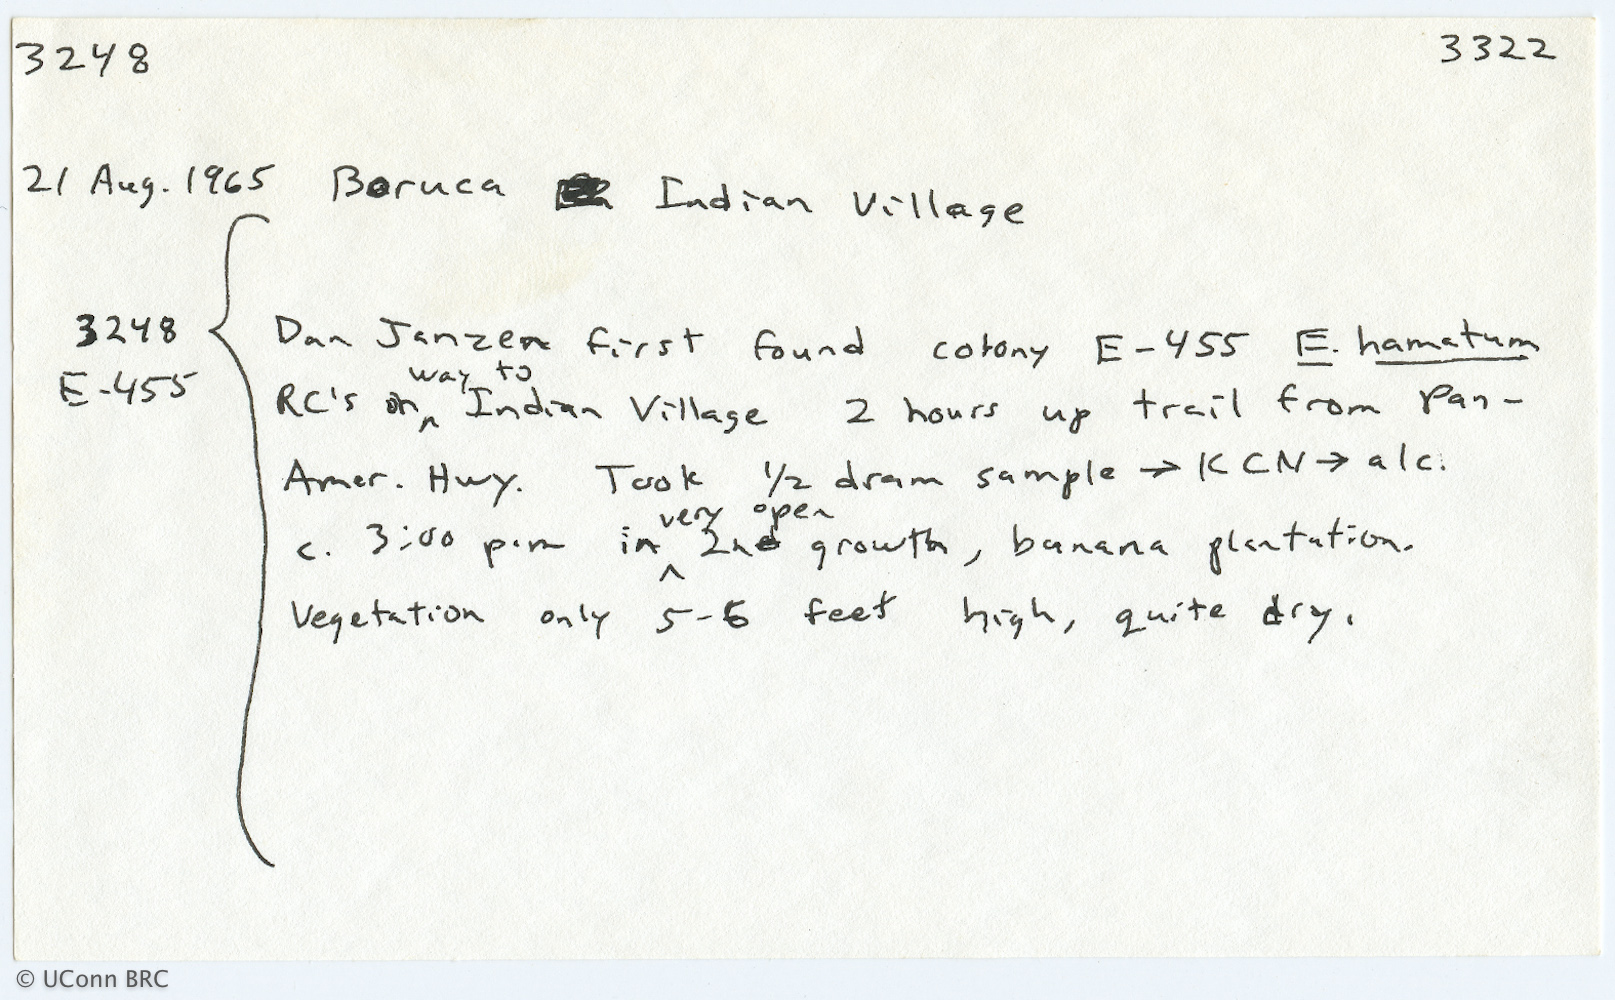 3248 3322
21 Aug. 1965 Boruca Indian Village
3248
E-455
Dan Janzen first found colony E-455 E. hamatum
RC's on way to Indian Village 2 hours up trail from Pan-
Amer. Hwy. Took 1/2 dram sample → KCN → alc.
c. 3:00 p.m in very open 2nd growth, banana plantation.
Vegetation only 5-6 feet high, quite dry.
© UConn BRC